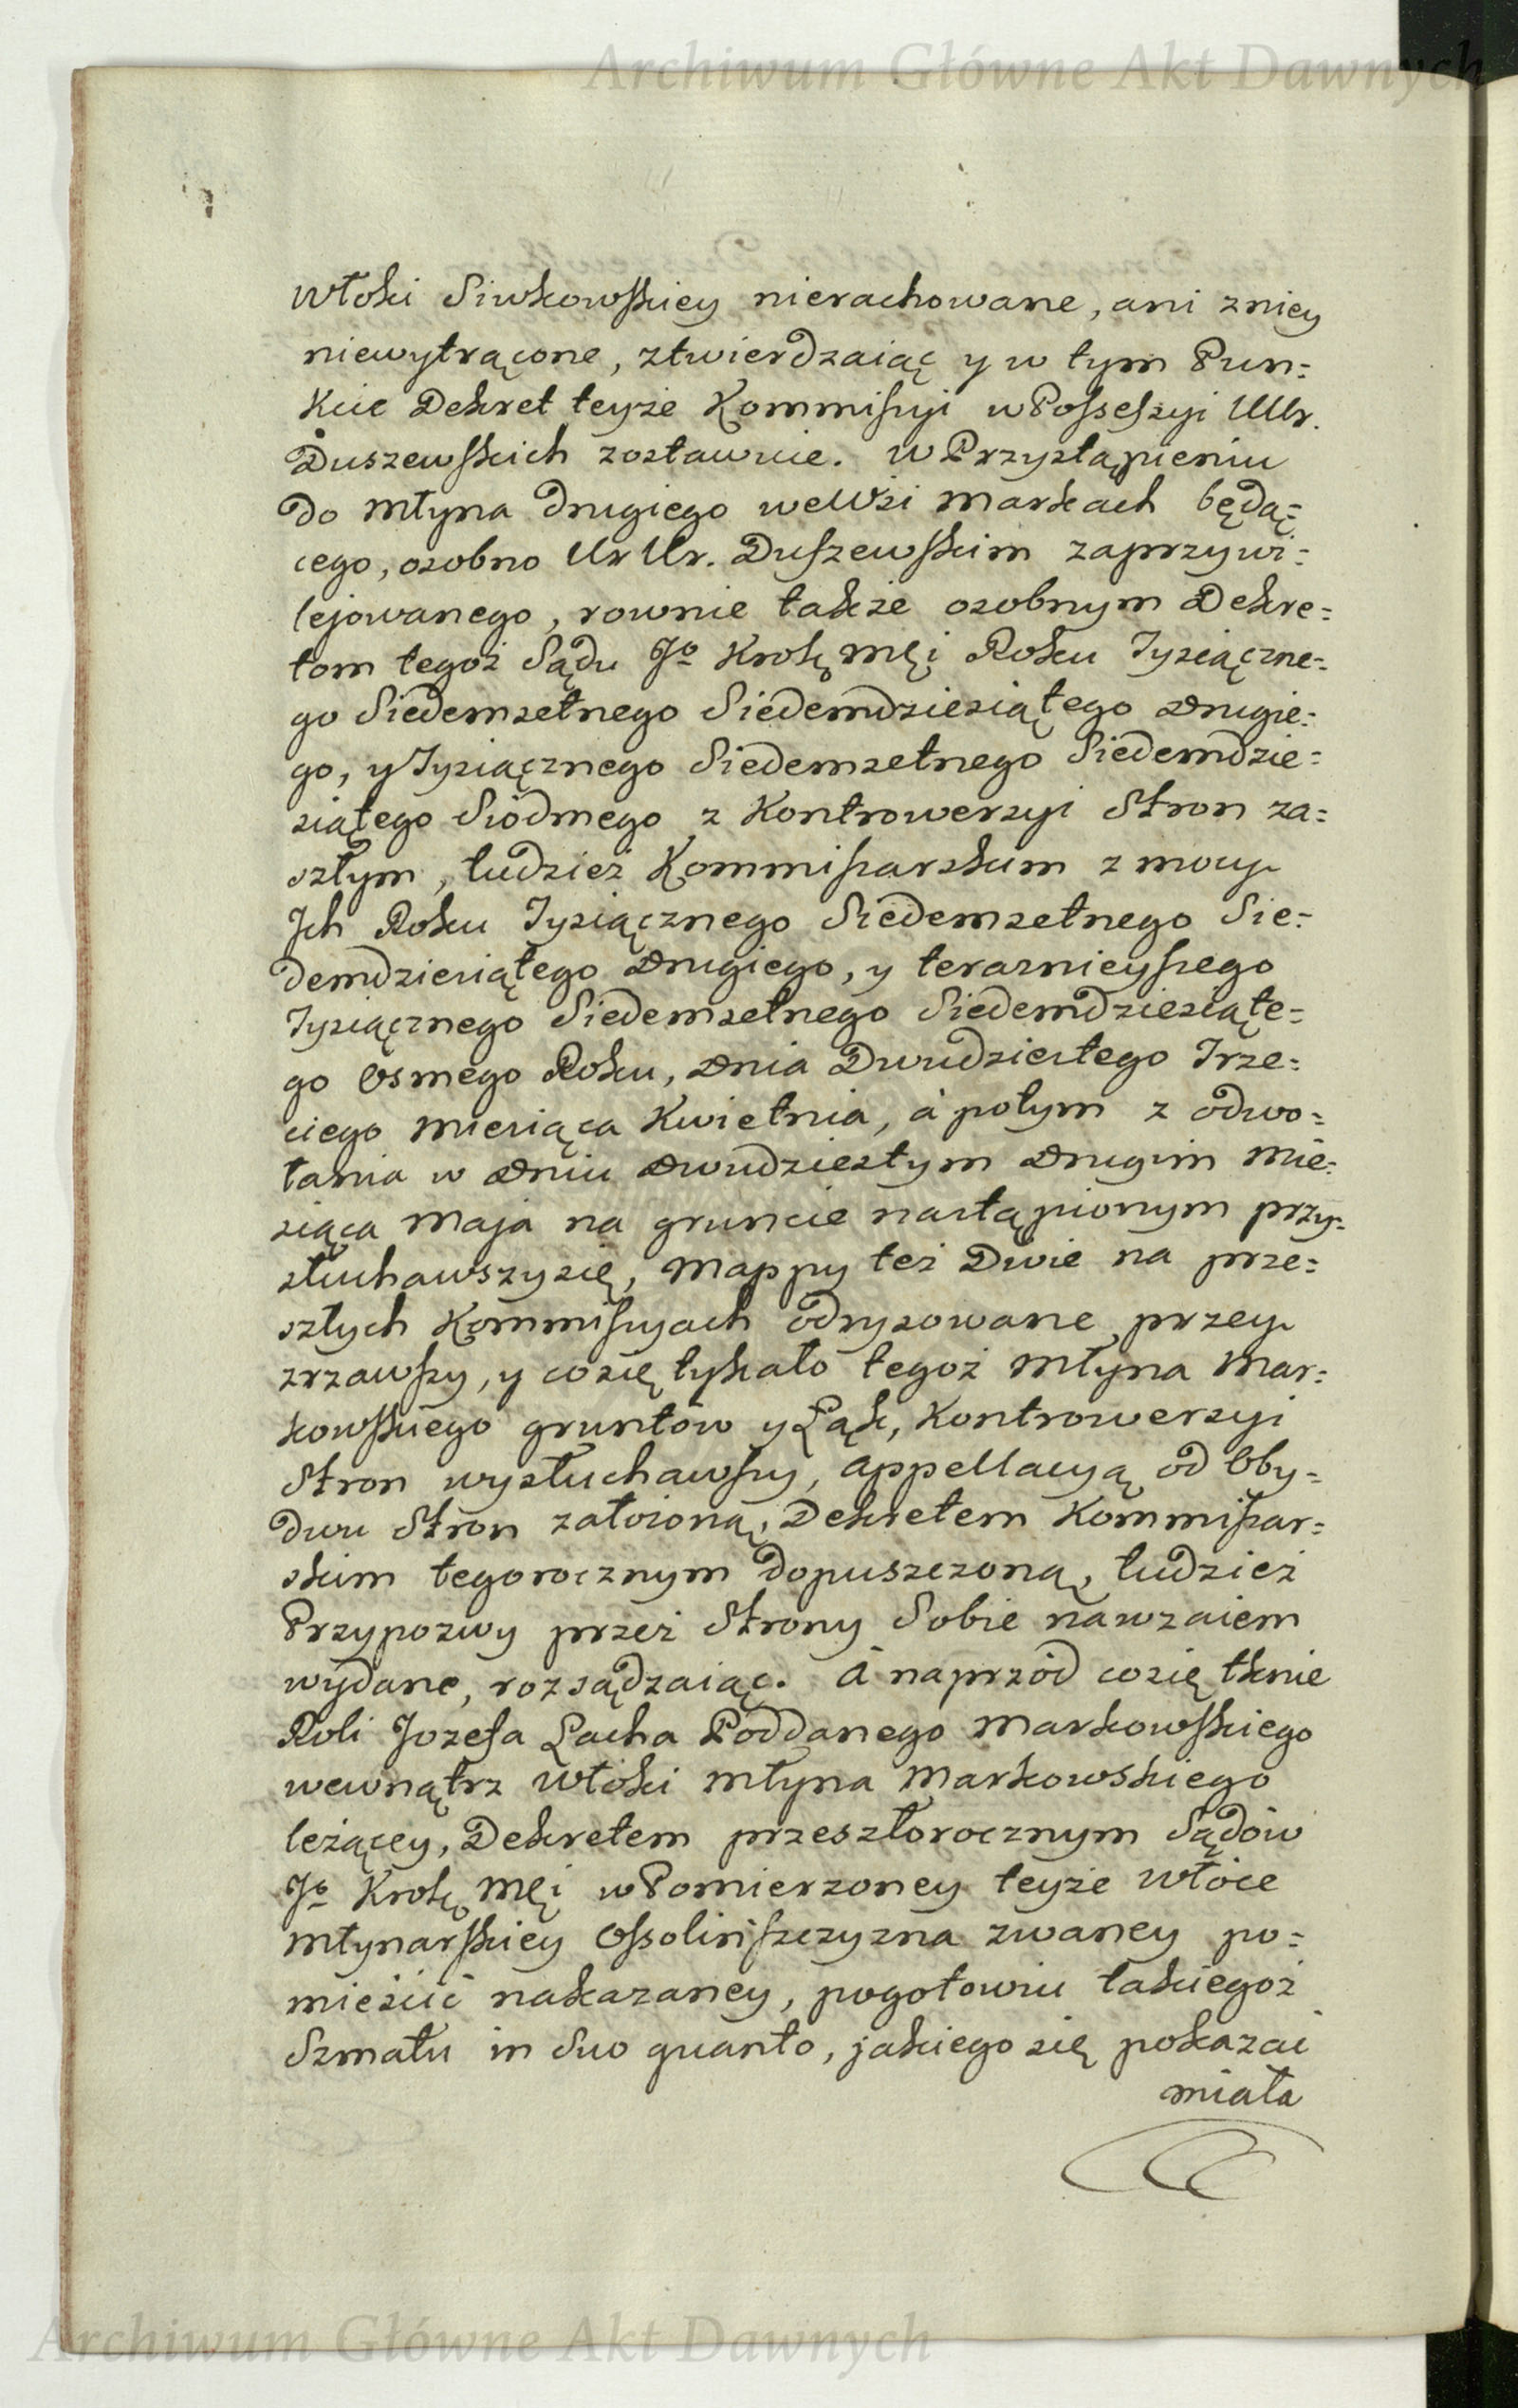 Archiwum Główne Akt Dawnych
Włoki Siwkowskiey nierachowane, ani zniey
niewytrącone, ztwierdzaiąc y w tym Pun=
kcie Dekret teyże Kommissyi w Possessyi UUr.
Duszewskich zostawuie. W Przystąpieniu
do Młyna drugiego we Wsi Markach będą=
cego, osobno Ur Ur. Duszewskim zaprzywi=
lejowanego, rownie także osobnym Dekre=
tom tegoż Sądu Jº Krolę Męi Roku Tysiączne=
go Siedemsetnego Siedemdziesiątego Drugie=
go, y Tysiącznego Siedemsetnego Siedemdzie=
siątego Siodmego z Kontrowersyi Stron za=
szłym, tudzież Kommissarskim z mocy
Jch Roku Tysiącznego Siedemsetnego Sie=
demdziesiątego Drugiego, y teraznieyszego
Tysiącznego Siedemsetnego Siedemdziesiąte=
go Osmego Roku, Dnia Dwudziestego Trze=
ciego Miesiąca Kwietnia, á potym z odwo=
łania w Dniu Dwudziestym Drugim Mie=
siąca Maja na gruncie nastąpionym przy=
słuchawszysię, Mappy też Dwie na prze=
szłych Kommissyach odrysowane przey
zrzawszy, y cosię tykało tegoż Młyna Mar=
kowskiego gruntów y Łąk, Kontrowersyi
Stron wysłuchawszy, Appellacyą od Oby=
dwu Stron założoną, Dekretem Kommissar=
skim tegorocznym dopuszczoną, tudzież
Przypozwy przez Strony Sobie nawzaiem
wydane, rozsądzaiąc. A naprzód cosię tknie
Roli Jozefa Lacha Poddanego Markowskiego
wewnątrz Włoki Młyna Markowskiego
leżącey, Dekretem przeszłorocznym Sądów
Jº Krolę Męi w Pomierzoney teyże Włoce
Młynarskiey Ossolińszczyzna zwaney po=
mieścić nakazaney, pogotowiu takiegoż
Szmatu in suo quanto, jakiego się pokazać
miała
Archiwum Główne Akt Dawnych